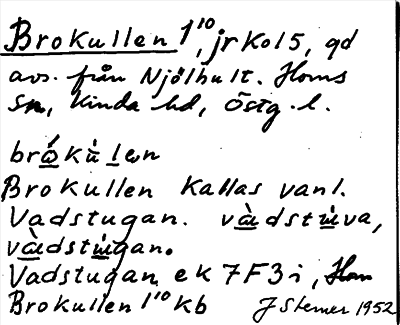 Brokullen 1¹⁰, jrkol5, gd
avs. från Njölhult. Horns
sn, Kinda hd, Östg. l.
brókùlen
Brokullen kallas vanl.
Vadstugan. vàdstùva,
vàdstùgan.
Vadstugan ek 7F3i,
Brokullen 1¹⁰ kb J Sterner 1952